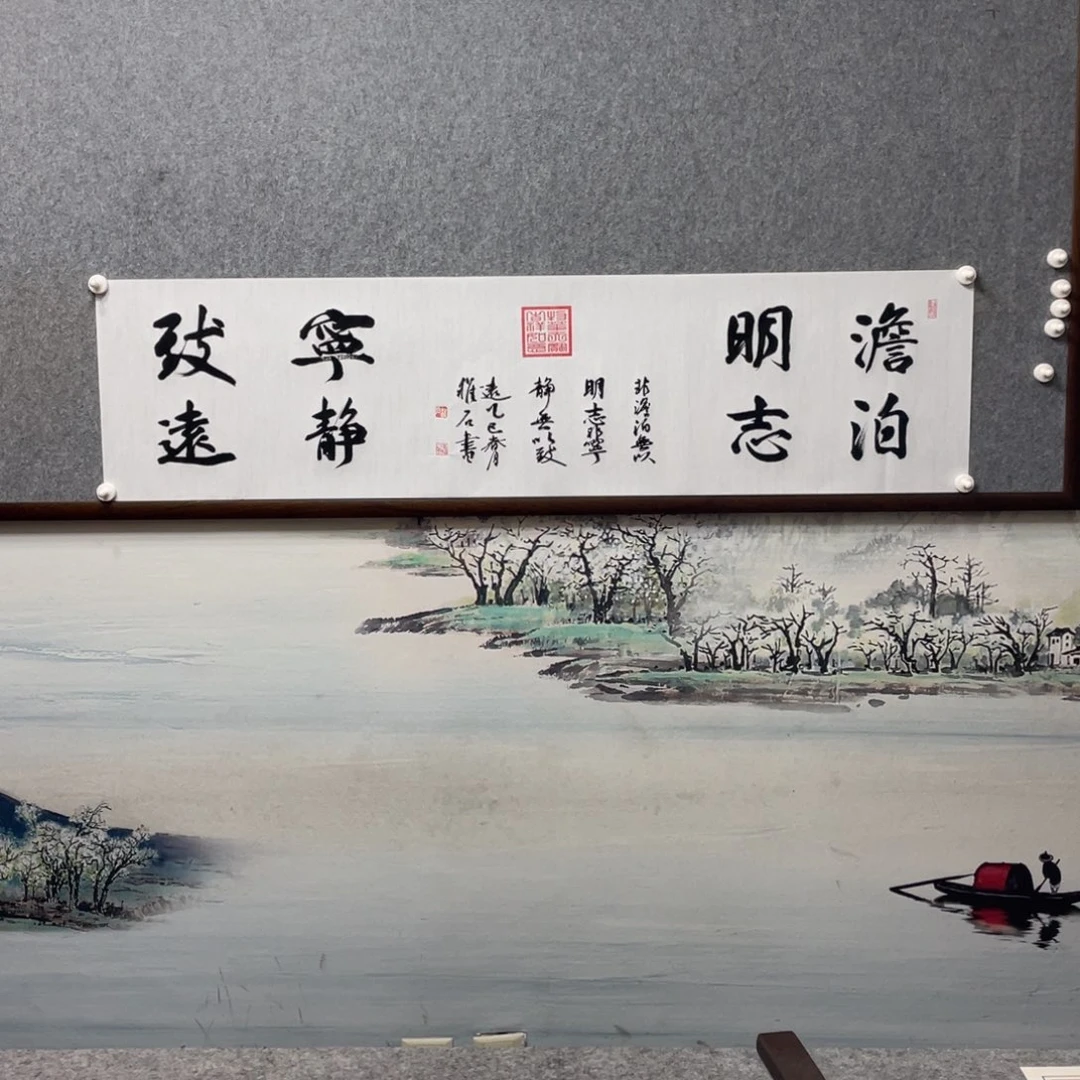 澹泊
明志
非澹泊無以
明志非寧
静無以致
遠乙巳春月
雅石書
寧静
致遠